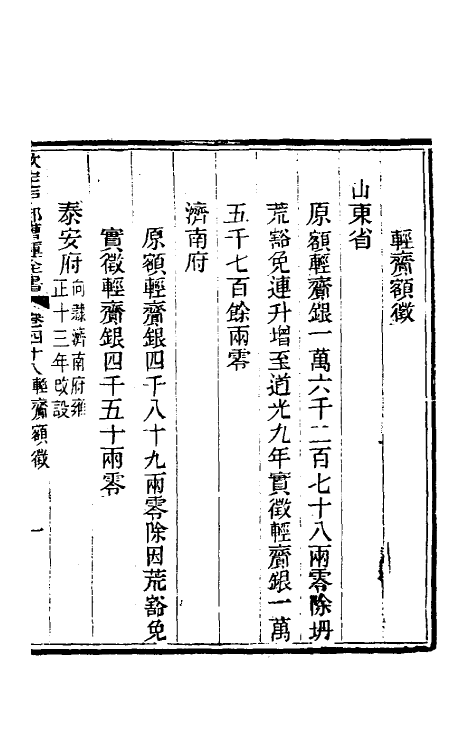 輕齎額徵
山東省
原額輕齎銀一萬六千二百七十八兩零除坍
荒豁免連升增至道光九年實徵輕齎銀一萬
五千七百餘兩零
濟南府
原額輕齎銀四千八十九兩零除因荒豁免
實徵輕齎銀四千五十兩零
泰安府向隸濟南府雍
正十三年改設
漕運全書 卷四十八輕齎額徵 一